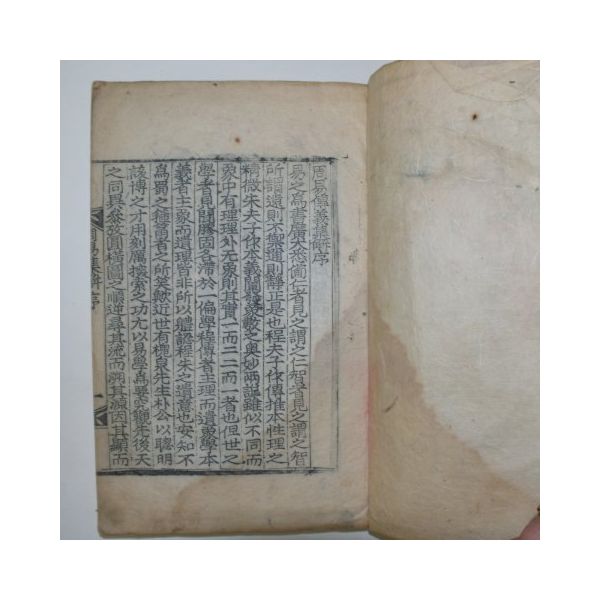 周易傳義集解序
易之爲書廣大悉備仁者見之謂之仁智者見之謂之智
所謂遠則不禦邇則靜正是也程夫子作傳推本性理之
精微朱夫子作本義闡發象數之奧妙兩註雖似不同而
象中有理理外无象則其實一而二二而一者也但世之
學者見聞膠固各滯於一偏學程傳者主理而遺象學本
義者主象而遺理皆非所以體認程朱之遺意也安知不
爲蜀之種薯者之所笑歟近世有槐泉先生朴公以聰明
該博之才用刻厲探索之功尤以易學爲要先後天
之同異參攷圓橫圖之順逆尋其流而溯其源因其顯而
周易集解序
一